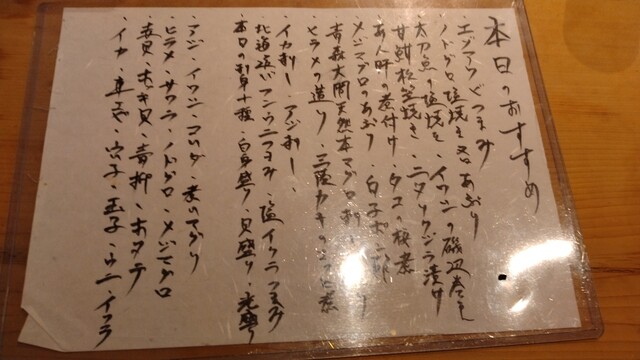 本日のおすすめ
エゾアワビつまみ
ノドグロ塩焼き又はあぶり
太刀魚の塩焼き・イワシの磯辺巻き
甘鯛松笠焼き・ニタリクジラ漬け
あん肝の煮付け・タコの桜煮
メジマグロのあぶり・白子ポン酢
青森大間天然本マグロ刺し
ヒラメの造り・三陸カキの
・イカ刺し・アジ刺し・
北海道バフンウニつまみ・塩イクラつまみ
・本日の刺身十種・白身盛り・貝盛り・光盛り
・アジ・イワシ・コハダ・煮ハマグリ
・ヒラメ・サワラ・ノドグロ・メジマグロ
・赤貝・ホッキ貝・青柳・ホタテ
・イカ・車エビ・穴子・玉子・ウニ・イクラ